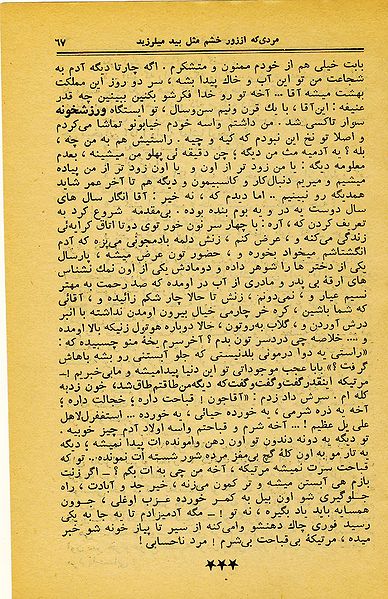 مردی‌که اززور خشم مثل بید میلرزید ۶۷
بابت خیلی هم از خودم ممنون و متشکرم . اگه چارتا دیگه آدم به
شجاعت من تو این آب و خاك پیدا بشه ، سر دو روز این مملکت
بهشت میشه آقا ... آخه تو رو خدا فکرشو بکنین ببینین چه قدر
عنیفه : این‌آقا ، با یك قرن ونیم سن‌وسال ، تو ایستگاه ورزشخونه
سوار تاکسی شد . من داشتم واسه خودم خیابونو تماشا می‌کردم
و اصلا تو نخ این نبودم که کیه و چیه . راستیش هم به من چه .
بله ؟ یه آدمیه مث من دیگه ؛ چن دقیقه ئی پهلو من میشینه ، بعدم
معلومه دیگه : یا من زود تر از اون و یا اون زود تر از من پیاده
میشیم و میریم دنبال‌کار و کاسبیمون و دیگه هم تا آخر عمر شاید
همدیگه رو نبینیم .. اما دیدم که ، نه خیر : آقا انگار سال های
سال دوست یه در و یه بوم بنده بوده . بی‌مقدمه شروع کرد به
تعریف کردن که ، آره : با چهار سر نون خور توی دوتا اتاق کرایه‌ئی
زندگی می‌کنه و ، عرض کنم ، زنش دلمه بادمجونی می‌پزه که آدم
انگشتاشم میخواد بخوره و ، حضور تون عرض میشه ، پارسال
یکی از دختر ها را شوهر داده و دومادش یکی از اون نمك نشناس
های ارقهٔ بی پدر و مادری از آب در اومده که صد رحمت به مهتر
نسیم عیار و ، نمی‌دونم ، زنش تا حالا چار شکم زائیده و ، آقائی
که شما باشین ، کره خر چارمی خیال بیرون اومدن نداشته با انبر
درش آوردن و ، گلاب به‌روتون ، حالا دوباره هوتول زنیکه بالا اومده
و .... خلاصه چی دردسر تون بدم ؟ آخرسرم یخهٔ منو چسبیده که :
«راستی یه دوا درمونی بلدنیستی که جلو آبستنی رو بشه باهاش
گرفت ؟» بابا عجب موجوداتی تو این دنیا پیدامیشه و مابی‌خبریم !–
مرتیکه اینقدرگفت‌وگفت‌وگفت‌که دیگه‌من‌طاقتم‌طاق‌شد، خون زدبه
کله ام . سرش داد زدم : «آقاجون ! قباحت داره ؛ خجالت داره ؛
آخه یه ذره شرمی ، یه خورده حیائی ، یه خورده ... استغفرالاهل
علی یل عظیم !... آخه شرم و قباحتم واسه اولاد آدم چیز خوبیه .
تو دیگه یه دونه دندون تو اون دهن وامونده ات پیدا نمیشه؛ دیگه
یه تار مو به اون کلهٔ گچ بی‌مغز مرده شور شسته ات نمونده.. تو که
قباحت سرت نمیشه مرتیکه ، آخه من چی به ات بگم ؟ – اگر زنت
بازم هی آبستن میشه و تر کمون می‌زنه ، خبر جد و آبادت ، راه
جلوگیری شو اون بیل به کمر خورده عزب اوغلی ، جوون
همسایه باید یاد بگیره ، نه تو !– مگه آدمیزادم تا یه جا به یکی
رسید فوری چاك دهنشو وامی‌کنه از سیر تا پیاز خونه شو خبر
میده ، مرتیکهٔ بی‌قباحت بی‌شرم ! مرد ناحسابی !
***